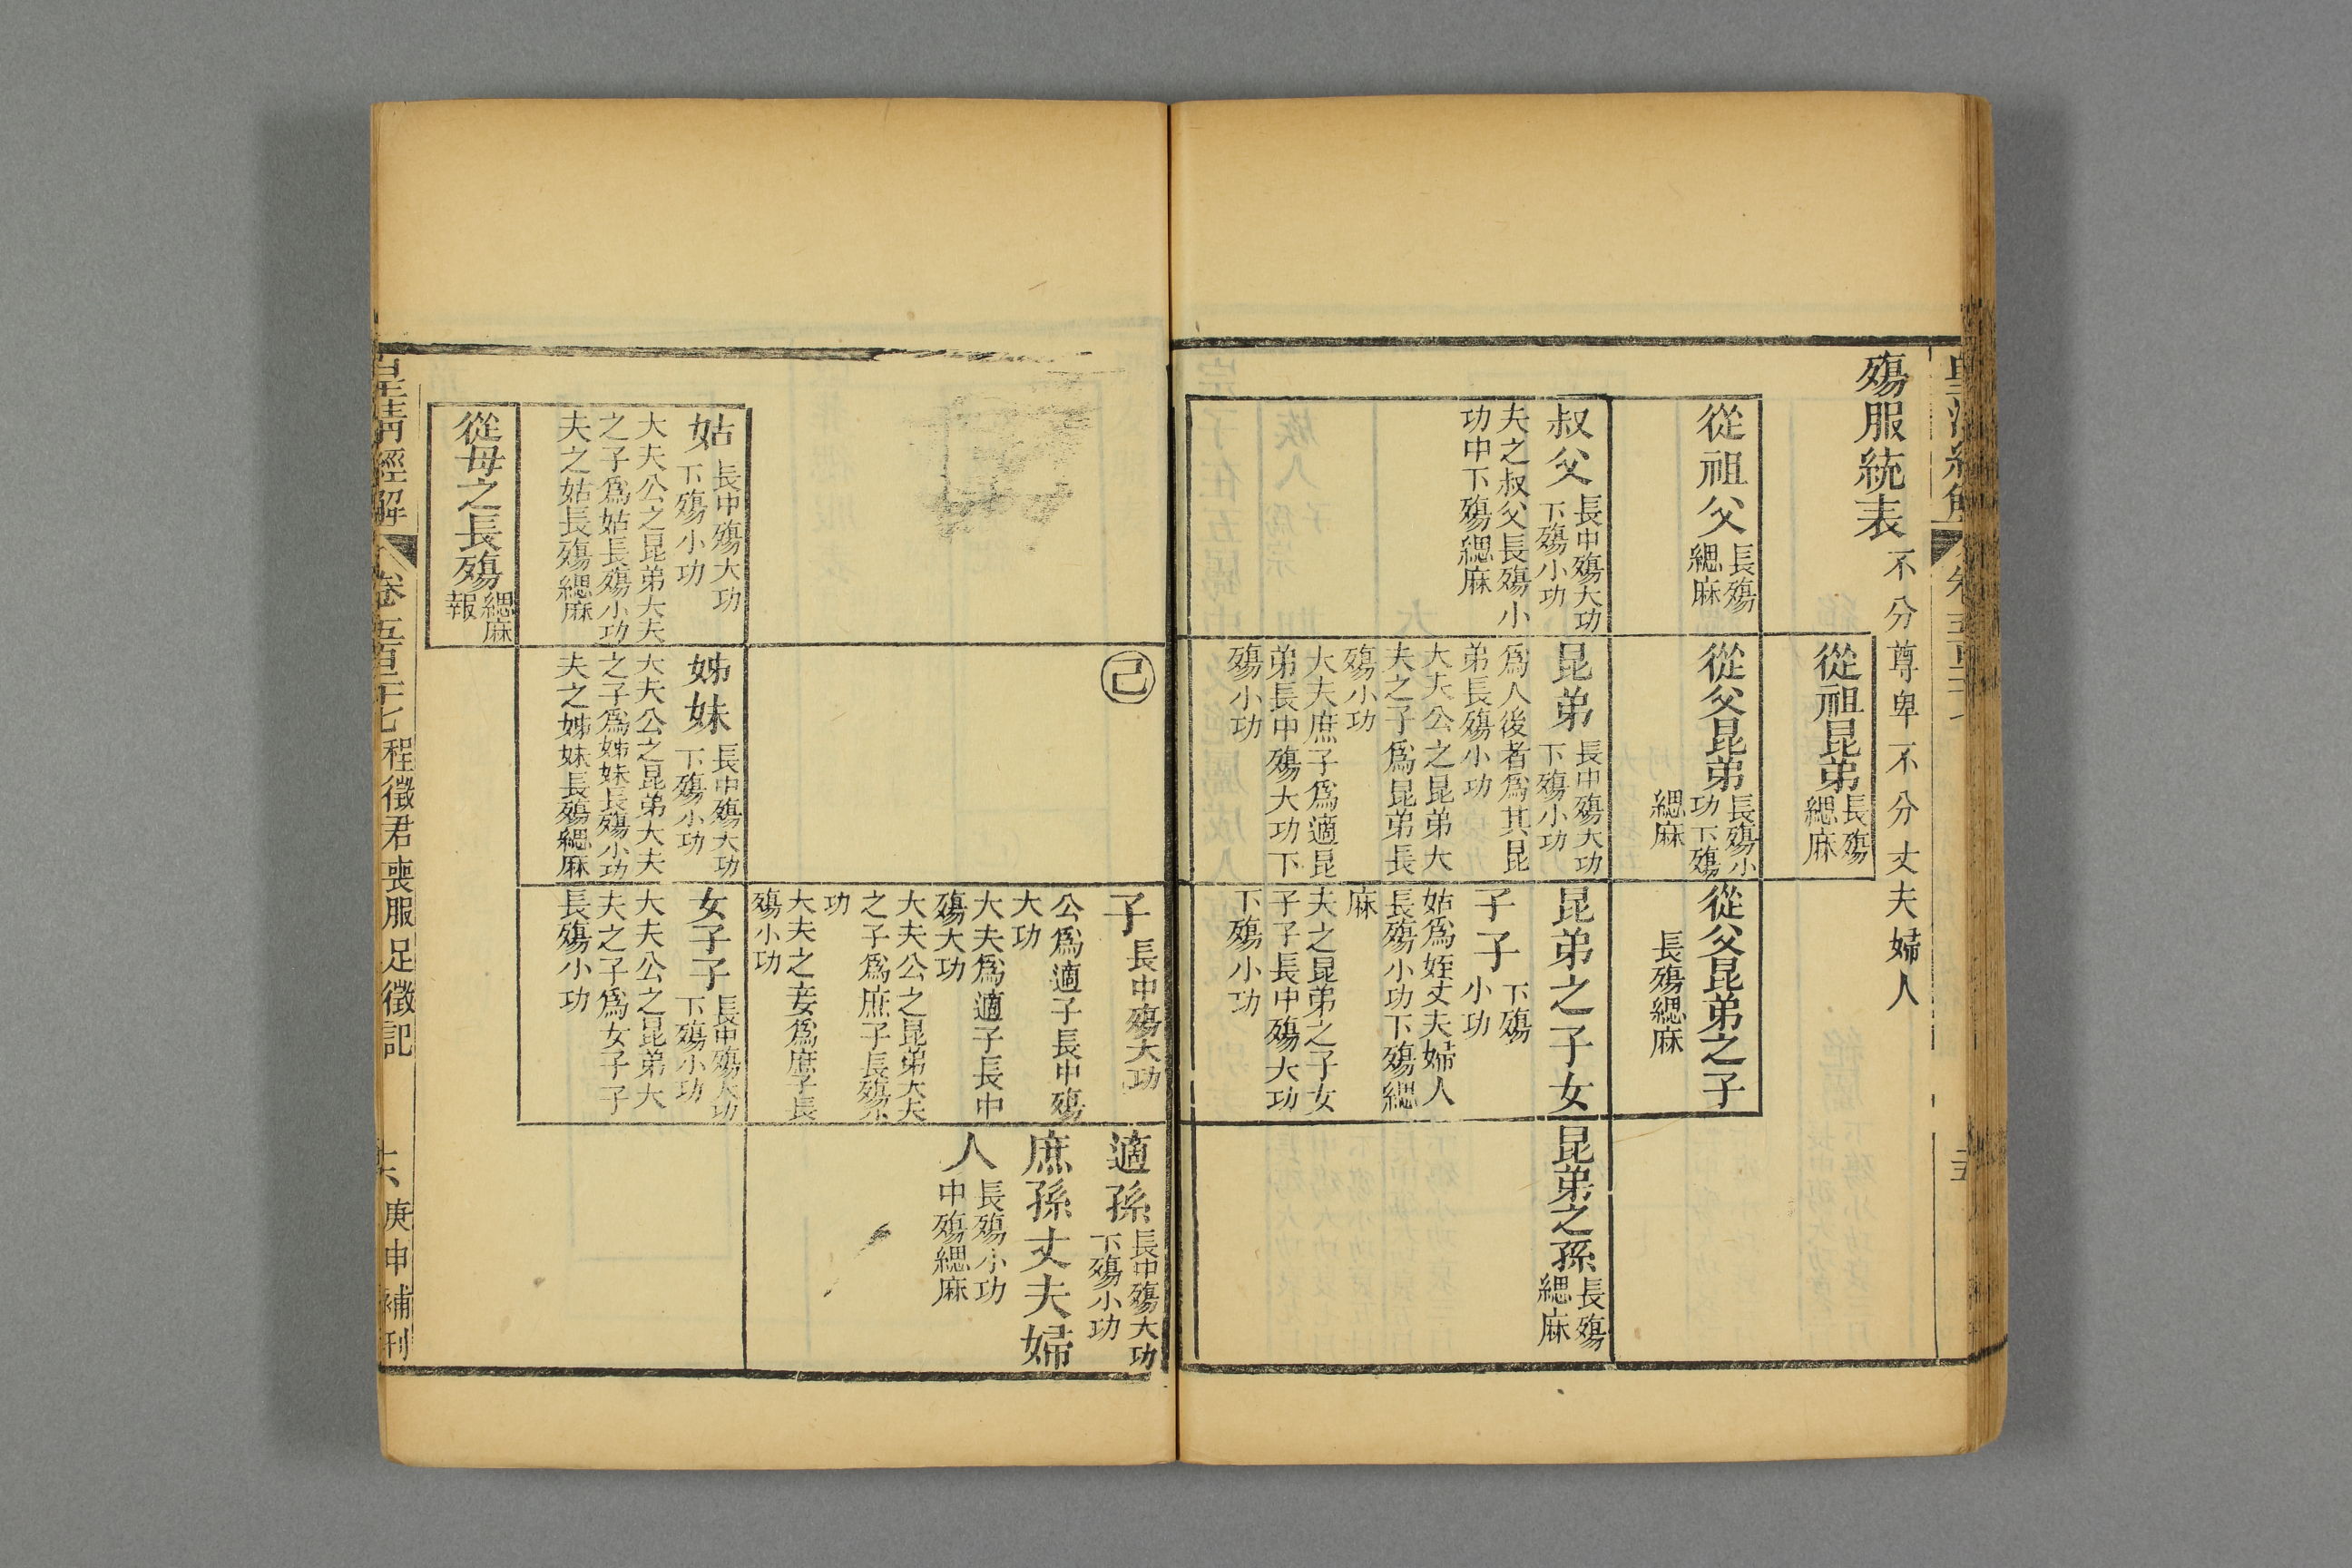 殤服統表
不分尊卑不分丈夫婦人
從祖昆弟
長殤
緦麻
從祖父
長殤
緦麻
從父昆弟
長殤小
功下殤
緦麻
從父昆弟之子
長殤緦麻
叔父
長中殤大功
下殤小功
夫之叔父長殤小
功中下殤緦麻
昆弟
長中殤大功
下殤小功
爲人後者爲其昆
弟長殤小功
大夫公之昆弟大
夫之子爲昆弟長
殤小功
大夫庶子爲適昆
弟長中殤大功下
殤小功
昆弟之子女
子子
下殤
小功
姑爲姪丈夫婦人
長殤小功下殤緦
麻
夫之昆弟之子女
子子長中殤大功
下殤小功
昆弟之孫
長殤
緦麻
己
子
長中殤大功
公爲適子長中殤
大功
大夫爲適子長中
殤大功
大夫公之昆弟大夫
之子爲庶子長殤小
功
大夫之妾爲庶子長
殤小功
適孫
長中殤大功
下殤小功
庶孫丈夫婦
人
長殤小功
中殤緦麻
姑
長中殤大功
下殤小功
大夫公之昆弟大夫
之子爲姑長殤小功
夫之姑長殤緦麻
姊妹
長中殤大功
下殤小功
大夫公之昆弟大夫
之子爲姊妹長殤小功
夫之姊妹長殤緦麻
女子子
長中殤大功
下殤小功
大夫公之昆弟大
夫之子爲女子子
長殤小功
從母之長殤
緦麻
報
皇淸經解
卷五百二十七
程徵君喪服足徵記
六
庚申補刊